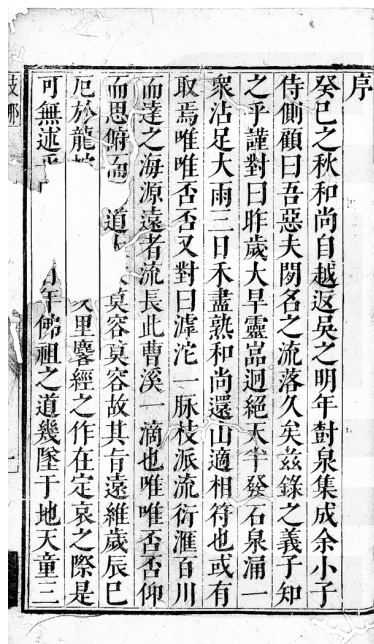 序
癸巳之秋和尚自越返吳之明年尌泉集成余小子
侍側顧曰吾惡夫閑名之流落久矣茲錄之義子知
之乎謹對曰昨歲大旱靈嵓迥絕天半發石泉涌一
衆沾足大雨三日禾盡熟和尚還山適相符也或有
取焉唯唯否否又對曰滹沱一脉枝派流衍滙百川
而達之海源遠者流長此曹溪一滴也唯唯否否仰
而思俯而道莫容莫容故其旨遠維歲辰巳
厄於龍里麐經之作在定哀之際是
可無述年佛祖之道幾墜于地天童三